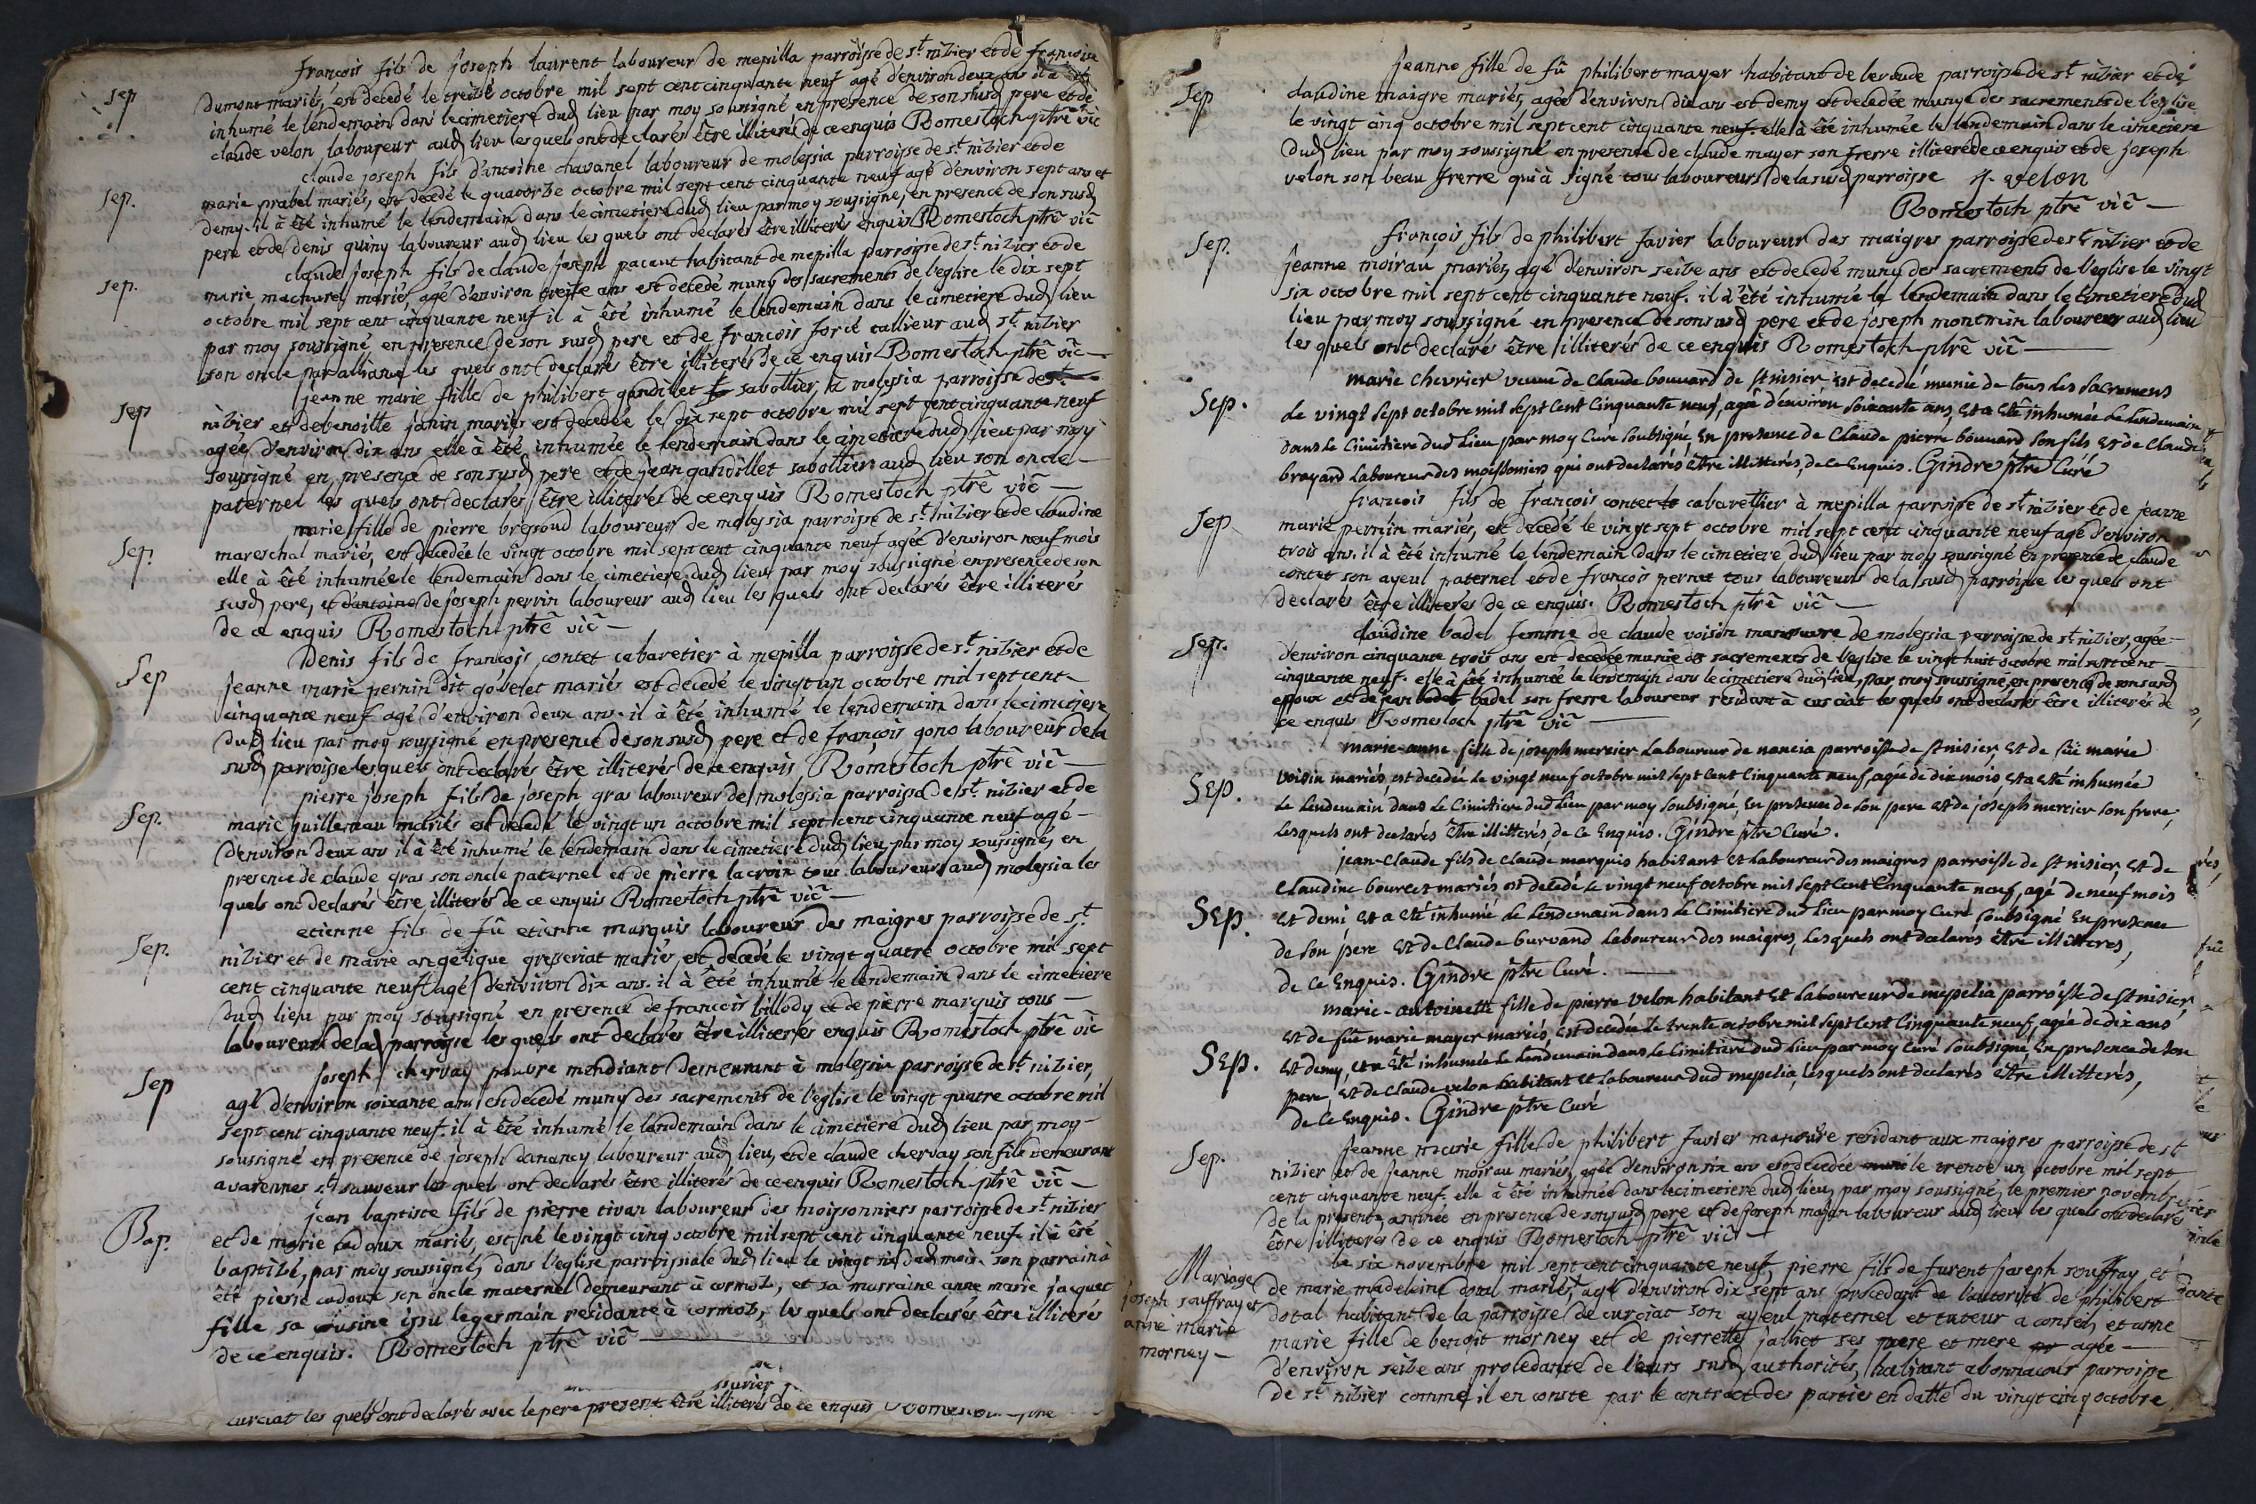 françois fils de joseph laurent laboureur de mepilla parroisse de st nizier et de françoise
Sep
dumont mariés, est decedé le treize octobre mil sept cent cinquante neuf agé d'environ deux ans il a été
inhumé le lendemain dans le cimetiere dud lieu par moy soussigné en presence de son susd pere et de
claude velon laboureur aud lieu les quels ont declarés être illiterés de ce enquis Romestoch ptre vic
claude joseph fils d'antoine chavanel laboureur de molessia parroisse de st nizier et de
Sep.
marie prabel mariés, est decedé le quatorze octobre mil sept cent cinquante neuf agé d'environ sept ans et
demy. il à été inhumé le lendemain dans le cimetiere dud lieu par moy soussigné, en presence de son susd
pere et de denis quiny laboureur aud lieu les quels ont declarés être illiterés enquis Romestoch ptre vic
claude joseph fils de claude joseph pacaut habitant de mepilla parroisse de st nizier et de
sep.
marie machurel mariés, agé d'environ treize ans est decedé muny des sacrements de l'eglise le dix sept
octobre mil sept cent cinquante neuf il a été inhumé le lendemain dans le cimetiere dud lieu
par moy soussigné en presence de son susd pere et de françois forcé tallieur aud st nizier
son oncle par alliance les quels ont declarés être illiterés de ce enquis Romestoch ptre vic
jeanne marie fille de philibert gandillet sabottier, à molessia parroisse de st
Sep
nizier et de benoitte janin mariés est decedée le dix sept octobre mil sept cent cinquante neuf
agée d'environ dix ans elle à été inhumée le lendemain dans le cimetiere dud lieu par moy
soussigné en presence de son susd pere et de jean gandillet sabottier aud lieu son oncle
paternel les quels ont declarés être illiterés de ce enquis Romestoch ptre vic
marie fille de pierre bressoud laboureur de molessia parroisse de st nizier et de claudine
Sep.
mareschal mariés, est decedée le vingt octobre mil sept cent cinquante neuf agée d'environ neuf mois
elle à été inhumée le lendemain dans le cimetiere dud lieu par moy soussigné en presence de son
susd pere, et d'antoine de joseph perrin laboureur aud lieu les quels ont declarés être illiterés
de ce enquis Romestoch ptre vic
Denis fils de françois contet cabaretier à mepilla parroisse de st nizier et de
Sep
jeanne marie pernin dit gobelet mariés est decedé le vingt un octobre mil sept cent
cinquante neuf agé d'environ deux ans. il à été inhumé le lendemain dans le cimetiere
dud lieu par moy soussigné en presence de son susd pere et de françois gono laboureur de la
susd parroisse les quels ont declarés être illiterés de ce enquis Romestoch ptre vic
pierre joseph fils de joseph gras laboureur de molessia parroisse de st nizier et de
Sep.
marie guillemeau mariés est decedé le vingt un octobre mil sept cent cinquante neuf agé
d'environ deux ans il à été inhumé le lendemain dans le cimetiere dud lieu par moy soussigné, en
presence de claude gras son oncle paternel et de pierre lacroix tous laboureurs aud molessia les
quels ont declarés être illiterés de ce enquis Romestoch ptre vic
etienne fils de fû etienne marquis laboureur des maigres parroisse de st
Sep.
nizier et de marie angelique gresseriat mariés, est decedé le vingt quatre octobre mil sept
cent cinquante neuf agé d'environ dix ans. il à été inhumé le lendemain dans le cimetiere
dud lieu par moy soussigné en presence de françois billody et de pierre marquis tous
laboureurs de lad parroisse les quels ont declarés être illiterés enquis Romestoch ptre vic
joseph chervay pauvre mendiant demeurant à molessia parroisse de st nizier,
Sep
agé d'environ soixante ans est decedé muny des sacrements de l'eglise le vingt quatre octobre mil
sept cent cinquante neuf. il à été inhumé le lendemain dans le cimetiere dud lieu par moy
soussigné en presence de joseph danancy laboureur aud lieu, et de claude chervay son fils demeurant
a varennes st sauveur les quels ont declarés être illiterés de ce enquis Romestoch ptre vic
jean baptiste fils de pierre tivan laboureur des moissonniers parroisse de st nizier
Bap.
et de marie cadoux mariés, est né le vingt cinq octobre mil sept cent cinquante neuf. il à été
baptizé, par moy soussigné, dans l'eglise parroissiale dud lieu le vingt six dud mois. son parrain à
été pierre cadoux son oncle maternel demeurant à cormoz, et sa marraine anne marie jacquet
fille sa cousine issu le germain residante à cormoz, les quels ont declarés être illiterés
de ce enquis. Romestoch ptre vic
curciat les quels ont declarés avec le pere present être illiterés de ce enquis
jeanne fille de fû philibert mayer habitant de parroisse de st nizier et de
Sep
claudine maigre mariés, agée d'environ dix ans est demy est decedée munye des sacrements de l'eglise
le vingt cinq octobre mil sept cent cinquante neuf. elle à été inhumée le lendemain dans le cimetiere
dud lieu par moy soussigné en presence de claude mayer son frerre illiteré de ce enquis et de joseph
velon son beau frerre qui à signé tous laboureurs de la susd parroisse j. velon
Romestoch ptre vic
françois fils de philibert favier laboureur des maigres parroisse de st nizier et de
Sep.
jeanne moirau mariés, agé d'environ seize ans est decedé muny des sacrements de l'eglise le vingt
six octobre mil sept cent cinquante neuf. il à été inhumé le lendemain dans le cimetiere dud
lieu par moy soussigné en presence de son susd pere et de joseph montmin laboureur aud lieu
les quels ont declarés être illiterés de ce enquis Romestoch ptre vic
marie chevrier veuve de claude bouvard de st nisier est decedée munie de tous les sacremens
Sep.
le vingt sept octobre mil sept cent cinquante neuf, agée d'environ soixante ans, et a été inhumée le lendemain
dans le cimitiere dud lieu par moy curé soubsigné en presence de claude pierre bouvard son fils et de claude
brayard laboureur des moissoniers qui ont declarés être illitterés, de ce enquis. Gindre ptre curé
françois fils de françois contet cabarettier à mepilla parroisse de st nizier et de jeanne
Sep
marie pernin mariés, est decedé le vingt sept octobre mil sept cent cinquante neuf agé d'environ
trois ans. il à été inhumé le lendemain dans le cimetiere dud lieu par moy soussigné en presence de claude
contet son ayeul paternel et de françois pernet tous laboureurs de la susd parroisse les quels ont
declarés être illiterés de ce enquis. Romestoch ptre vic
claudine badel femme de claude voisin manouvre de molessia parroisse de st nizier, agée
Sep.
d'environ cinquante trois ans est decedée munie des sacrements de l'eglise le vingt huit octobre mil sept cent
cinquante neuf. elle à été inhumée le lendemain dans le cimetiere dud lieu, par moy soussigné, en presence de son susd
epoux et de jean badel son frerre laboureur residant à curciat les quels ont declarés être illiterés de
ce enquis Romestoch ptre vic
marie-anne fille de joseph mercier laboureur de nancia parroisse de st nisier, et de füe marie
Sep.
voisin mariés, est decedée le vingt neuf octobre mil sept cent cinquante neuf, agée de dix mois, et a été inhumée
le lendemain dans le cimitiere dud lieu par moy soubsigné, en presence de son pere et de joseph mercier son frere,
lesquels ont declarés être illitterés, de ce enquis. Gindre ptre curé.
jean-claude fils de claude marquis habitant et laboureur des maigres parroisse de st nisier, et de
Sep.
claudine bourcet mariés est decedé le vingt neuf octobre mil sept cent cinquante neuf, agé de neuf mois
et demi et a été inhumé le lendemain dans le cimitiere dud lieu par moy curé soubsigné en presence
de son pere et de claude burvand laboureur des maigres, lesquels ont declarés être illitterés,
de ce enquis. Gindre ptre curé.
marie-antoinette fille de pierre velon habitant et laboureur de mepelia parroisse de st nisier,
Sep.
et de füe marie mayer mariés, est decedée le trente octobre mil sept cent cinquante neuf, agée de dix ans
et demy, et a été inhumée le lendemain dans le cimitiere dud lieu par moy curé soubsigné en presence de son
pere, et de claude velon habitant et laboureur dud mepelia, lesquels ont declarés être illitterés,
de ce enquis. Gindre ptre curé
jeanne marie fille de philibert favier manouvre residant aux maigres parroisse de st
Sep.
nizier et de jeanne moirau mariés, agée d'environ six ans est decedée le trente un octobre mil sept
cent cinquante neuf. elle à été inhumée dans le cimetiere dud lieu, par moy soussigné, le premier novembre
de la presente année en presence de son susd pere et de joseph mayer laboureur aud lieu les quels ont declarés
être illiterés de ce enquis Romestoch ptre vic
Mariage
joseph souffray et
anne marie
morney
Le six novembre mil sept cent cinquante neuf, pierre fils de furent joseph souffray, et
de marie madeleine dotal mariés, agé d'environ dix sept ans procedant de l'autorité de philibert
dotal habitant de la parroisse de curciat son ayeul maternel et tuteur a conseil, et anne
marie fille de benoit morney et de pierrette jalliet ses pere et mere agée
d'environ seize ans procedante de leurs susd authorités, habitant abonnacour parroisse
de st nizier comme il en conste par le contract des parties en datte du vingt cinq octobre